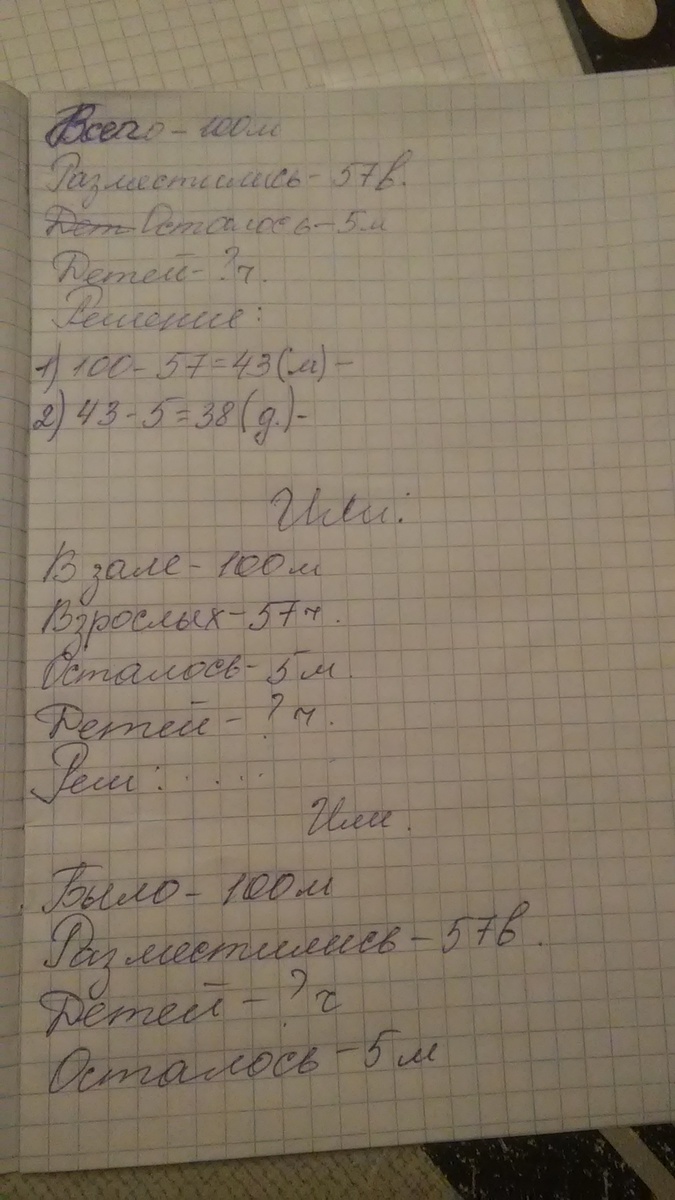 Всего - 100м
Разместились - 57в.
Дет Осталось - 5м
Детей - ? ч.
Решение:
1) 100 - 57 = 43 (м) -
2) 43 - 5 = 38 (д.) -
Или:
В зале - 100м
Взрослых - 57ч.
Осталось - 5м.
Детей - ? ч.
Реш: . . . .
Или.
Было - 100м
Разместились - 57в.
Детей - ? ч
Осталось - 5м